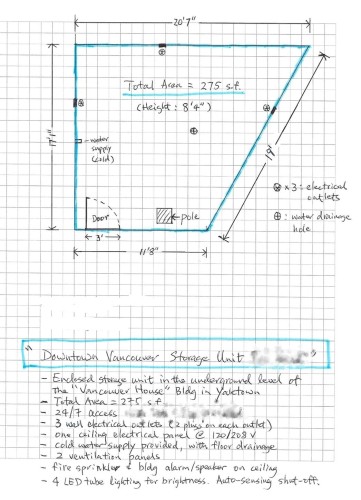 20'7"
Total Area = 275 s.f.
(Height: 8'4")
17'1"
water supply (cold)
19'
x 3: electrical outlets
: water drainage hole
Door
pole
3'
11'8"
"Downtown Vancouver Storage Unit "
- Enclosed storage unit in the underground level of
the "Vancouver House" Bldg in Yaletown
- Total Area = 275 s.f.
- 24/7 access
- 3 wall electrical outlets (2 plugs on each outlet)
- one ceiling electrical panel @ 120/208 V
- cold water supply provided, with floor drainage
- 2 ventilation panels
- fire sprinkler & bldg alarm/speaker on ceiling
- 4 LED tube lighting for brightness. Auto-sensing shut-off.